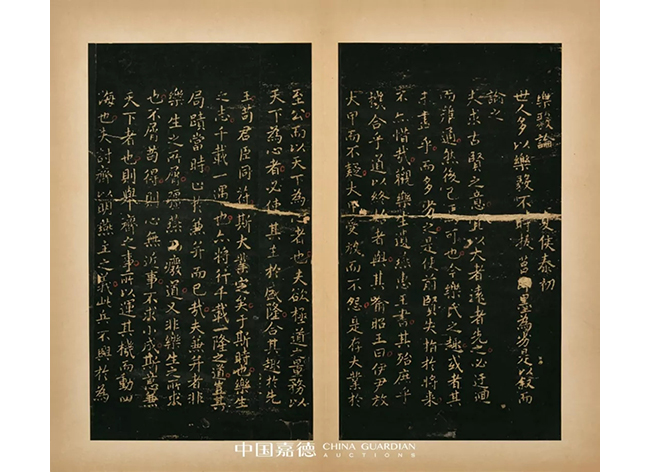 樂毅論 夏侯泰初
世人多以樂毅不時拔莒即墨為劣是以叙而
論之
夫求古賢之意宜以大者遠者先之必迂迴
而難通然後已焉可也今樂氏之趣或者其
未盡乎而多劣之是使前賢失指於將來
不亦惜哉觀樂生遺燕惠王書其殆庶乎
機合乎道以終始者與其喻昭王曰伊尹放
大甲而不疑大甲受放而不怨是存大業於
至公而以天下為心者也夫欲極道之量務以
天下為心者必致其主於盛隆合其趣於先
王苟君臣同符斯大業定矣于斯時也樂生
之志千載一遇也亦將行千載一隆之道豈其
局蹟當時止於兼并而已哉夫兼并者非
樂生之所屑彊燕而廢道又非樂生之所求
也不屑苟得則心無近事不求小成斯意兼
天下者也則舉齊之事所以運其機而動四
海也夫討齊以明燕主之義此兵不興於為
中国嘉德 CHINA GUARDIAN
AUCTIONS